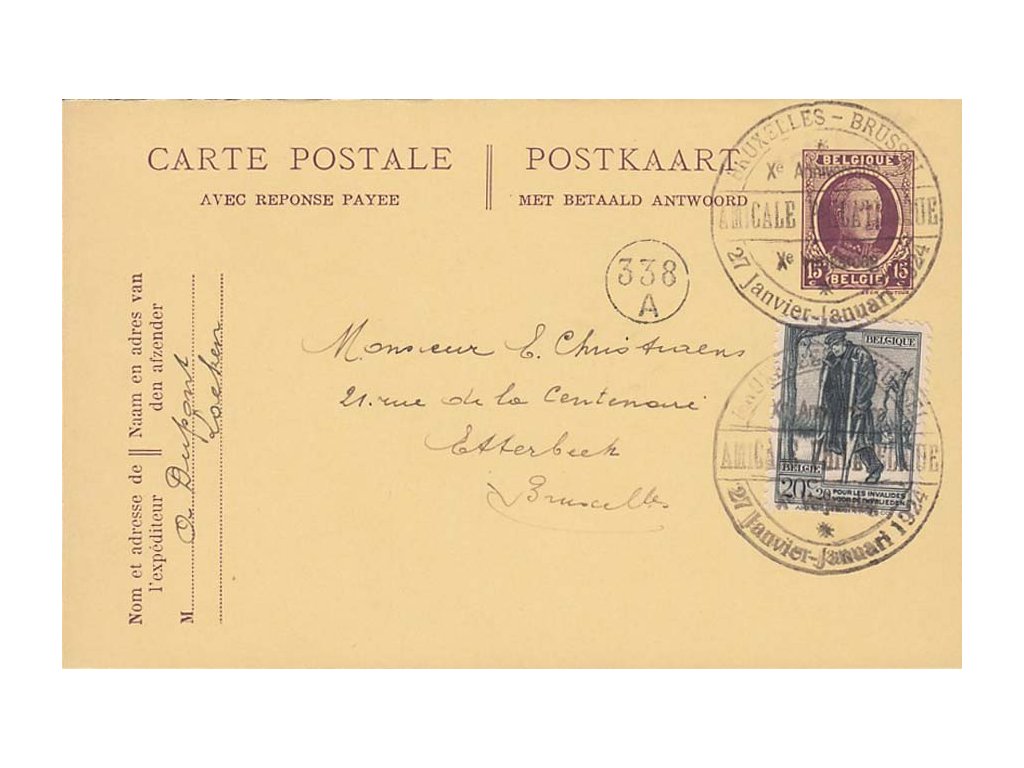 CARTE POSTALE POSTKAART
AVEC REPONSE PAYEE MET BETAALD ANTWOORD
BRUXELLES - BRUSS
Xe Anniversaire
AMICALE PHILATELIQUE
Xe
27 Janvier-Januari 1924
BELGIQUE
15 BELGIË 15
338
A
Monsieur E. Christiaens
21. rue de la Centenaire
Etterbeek
Bruxelles
BELGIQUE
BELGIE
20c 20
POUR LES INVALIDES
Xe Anniversaire
AMICALE PHILATELIQUE
27 Janvier-Januari 1924
Nom et adresse de Naam en adres van
l'expéditeur den afzender
M. Dupont
Laeken